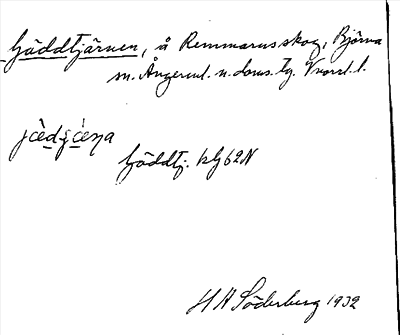 Gäddtjärnen, å Remmarns skog, Björna
sn. Ångerml. n. doms. tg. Vnorrl. l.
Gäddtj. kbl 62N
H A Söderberg 1932